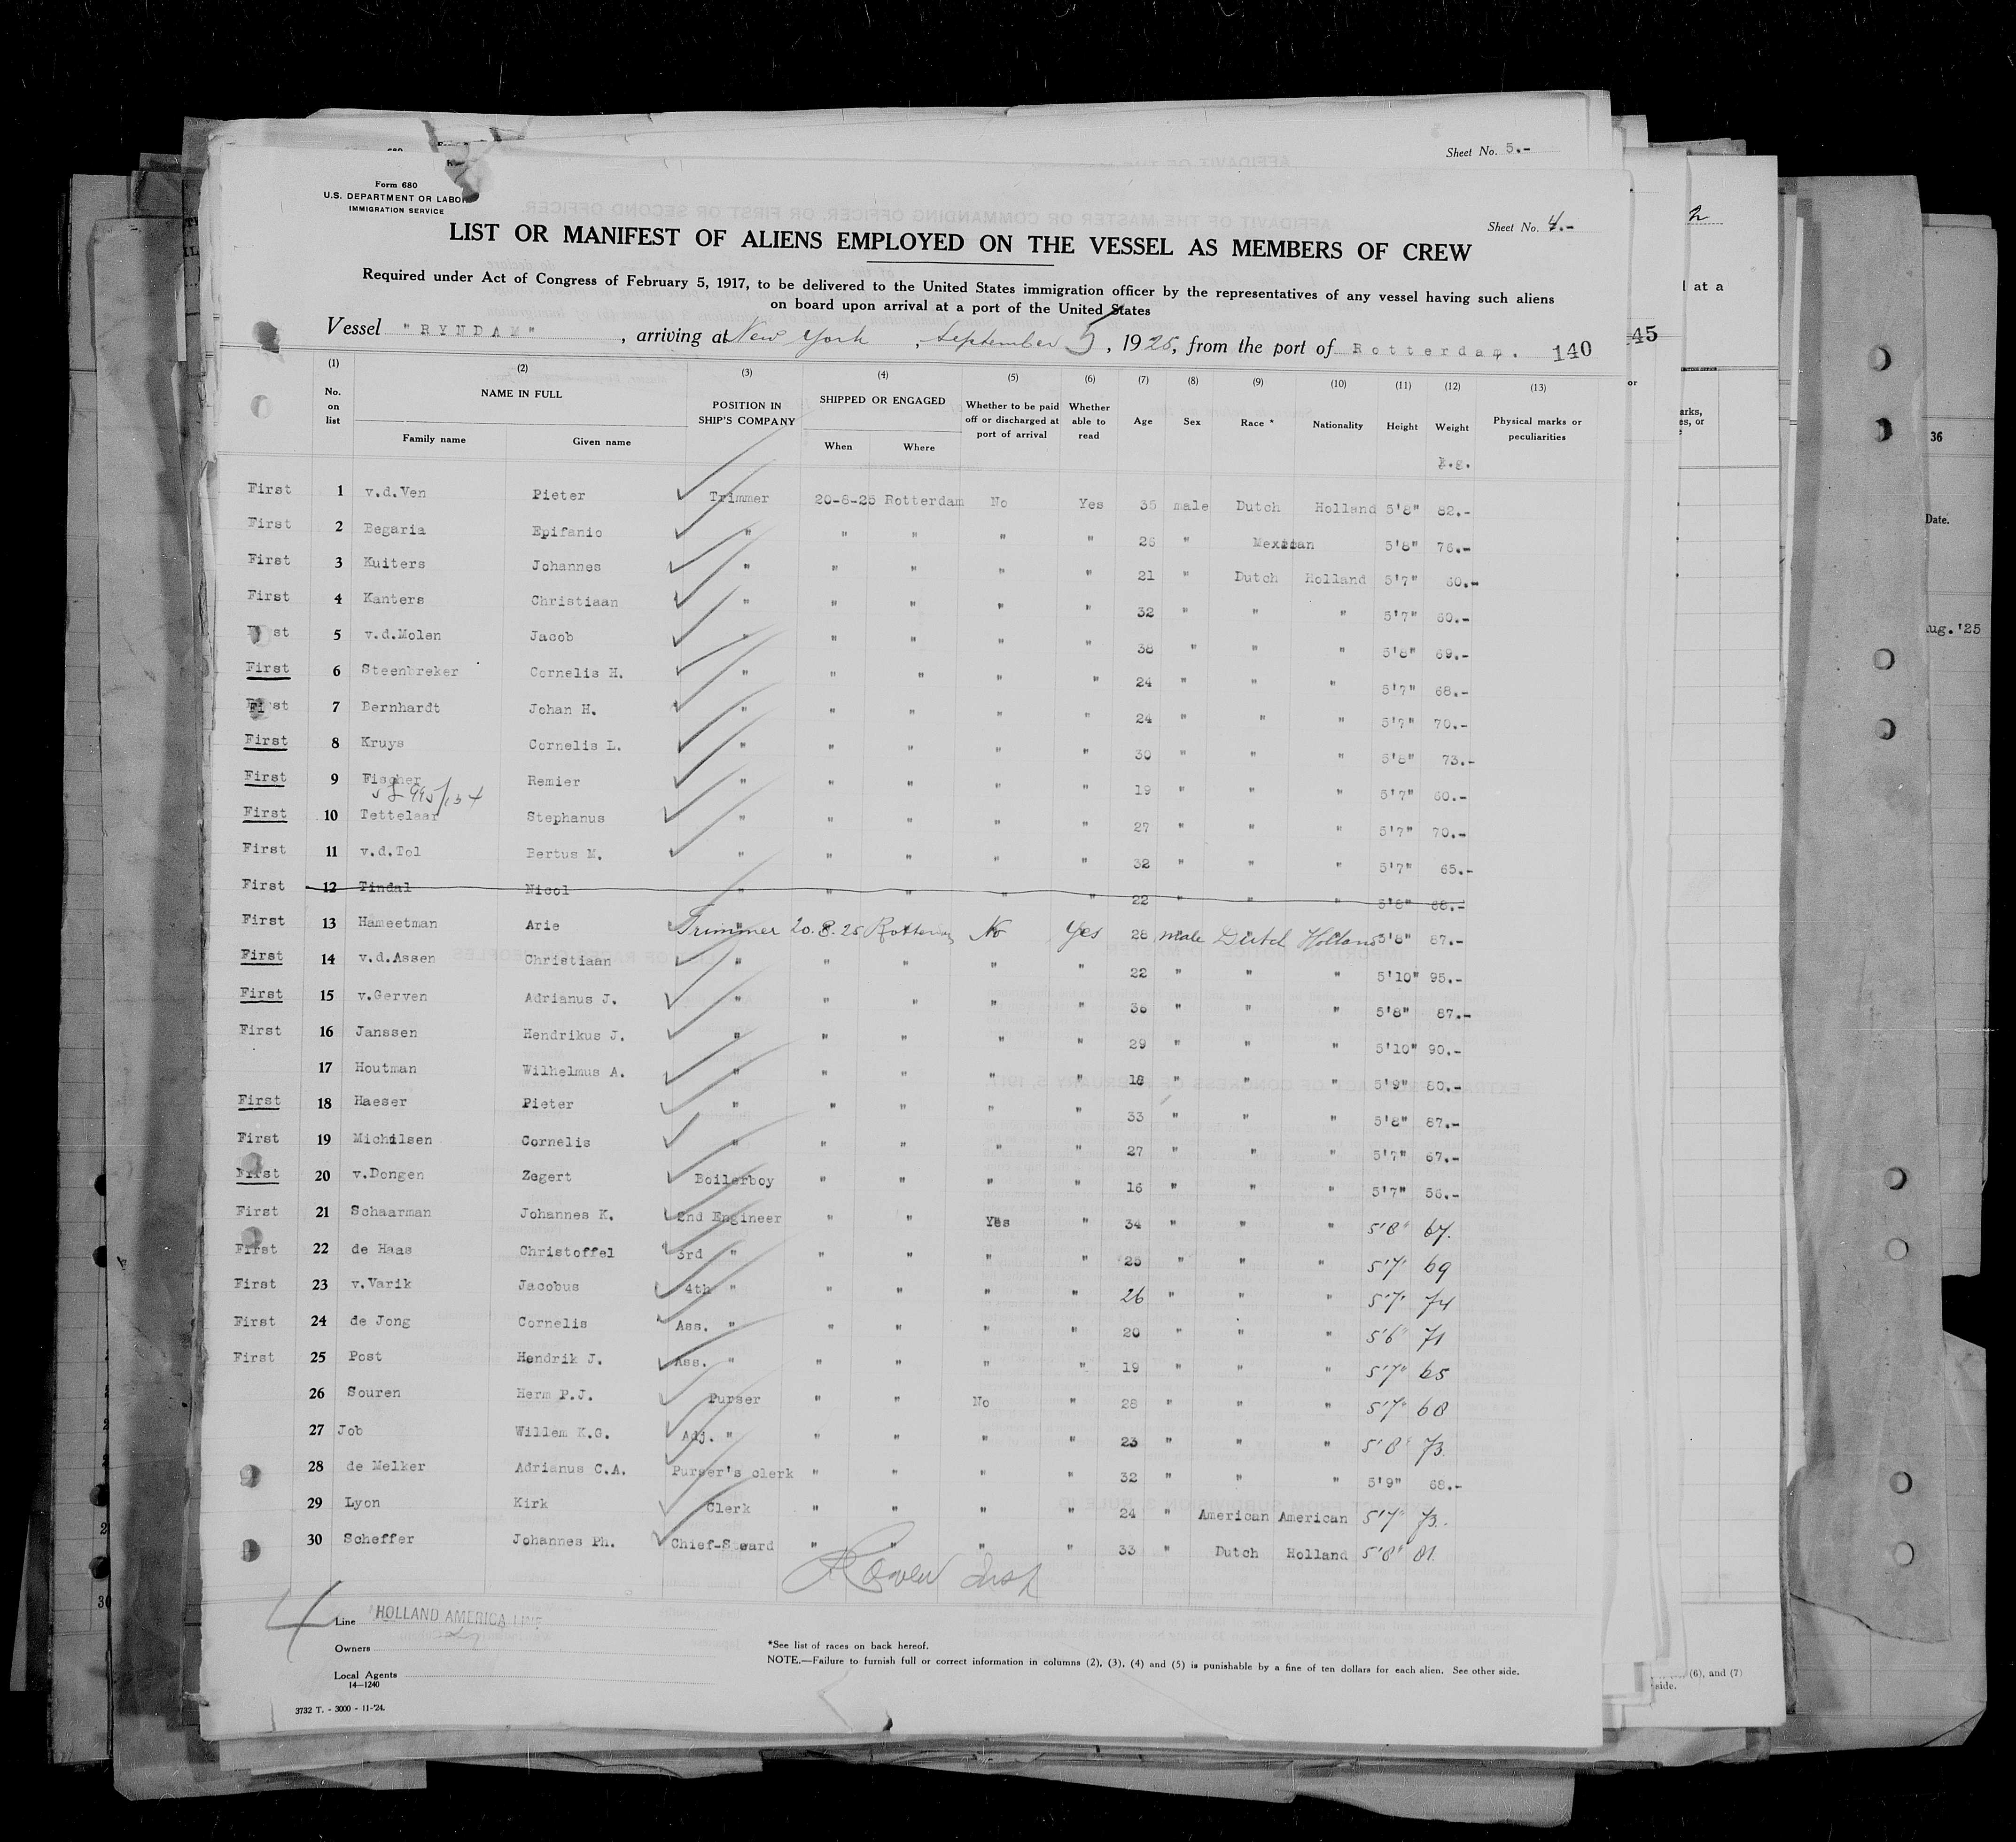 Sheet No. 5.-
Form 680
U.S. DEPARTMENT OR LABOR
IMMIGRATION SERVICE
Sheet No. 4.-
LIST OR MANIFEST OF ALIENS EMPLOYED ON THE VESSEL AS MEMBERS OF CREW
Required under Act of Congress of February 5, 1917, to be delivered to the United States immigration officer by the representatives of any vessel having such aliens
on board upon arrival at a port of the United States
Vessel "RYNDAM", arriving at New York, September 5, 1925, from the port of Rotterdam. 140
(1) (2) (3) (4) (5) (6) (7) (8) (9) (10) (11) (12) (13)
No. on list NAME IN FULL Family name Given name POSITION IN SHIP'S COMPANY SHIPPED OR ENGAGED When Where Whether to be paid off or discharged at port of arrival Whether able to read Age Sex Race * Nationality Height Weight Physical marks or peculiarities
k.g.
First 1 v.d.Ven Pieter Trimmer 20-8-25 Rotterdam No Yes 35 male Dutch Holland 5'8" 82.-
First 2 Begaria Epifanio " " " " " 26 " Mexican 5'8" 76.-
First 3 Kuiters Johannes " " " " " 21 " Dutch Holland 5'7" 60.-
First 4 Kanters Christiaan " " " " " 32 " " " 5'7" 60.-
st 5 v.d.Molen Jacob " " " " " 38 " " " 5'8" 69.-
First 6 Steenbreker Cornelis H. " " " " " 24 " " " 5'7" 68.-
First 7 Bernhardt Johan H. " " " " " 24 " " " 5'7" 70.-
First 8 Kruys Cornelis L. " " " " " 30 " " " 5'8" 73.-
First 9 Fischer Remier " " " " " 19 " " " 5'7" 60.-
First 10 Tettelaar Stephanus " " " " " 27 " " " 5'7" 70.-
First 11 v.d.Tol Bertus M. " " " " " 32 " " " 5'7" 65.-
First 12 Tindal Nicol " " " " " 22 " " " 5'8" 68.-
First 13 Hameetman Arie Trimmer 20.8.25 Rotterdam No Yes 28 male Dutch Holland 5'8" 87.-
First 14 v.d.Assen Christiaan " " " " " 22 " " " 5'10" 95.-
First 15 v.Gerven Adrianus J. " " " " " 36 " " " 5'8" 87.-
First 16 Janssen Hendrikus J. " " " " " 29 " " " 5'10" 90.-
17 Houtman Wilhelmus A. " " " " " 18 " " " 5'9" 80.-
First 18 Haeser Pieter " " " " " 33 " " " 5'8" 87.-
First 19 Michilsen Cornelis " " " " " 27 " " " 5'7" 67.-
First 20 v.Dongen Zegert Boilerboy " " " " 16 " " " 5'7" 56.-
First 21 Schaarman Johannes K. 2nd Engineer " " Yes " 34 " " " 5'8" 67.
First 22 de Haas Christoffel 3rd " " " " " 25 " " " 5'7" 69
First 23 v.Varik Jacobus 4th " " " " " 26 " " " 5'7" 74
First 24 de Jong Cornelis Ass. " " " " " 20 " " " 5'6" 71
First 25 Post Hendrik J. Ass. " " " " " 19 " " " 5'7" 65
26 Souren Herm P.J. Purser " " No " 28 " " " 5'7" 68
27 Job Willem K.G. Adj. " " " " " 23 " " " 5'8" 73.
28 de Melker Adrianus C.A. Purser's clerk " " " " 32 " " " 5'9" 68.-
29 Lyon Kirk Clerk " " " " 24 " American American 5'7" 73.
30 Scheffer Johannes Ph. Chief-Steard " " " " 33 " Dutch Holland 5'8" 81.
4
Line HOLLAND AMERICA LINE
Owners
Local Agents
14—1240
*See list of races on back hereof.
NOTE.—Failure to furnish full or correct information in columns (2), (3), (4) and (5) is punishable by a fine of ten dollars for each alien. See other side.
3732 T. - 3000 - 11-'24.
at a
45
or
36
Date.
ug.'25
(6), and (7)
side.